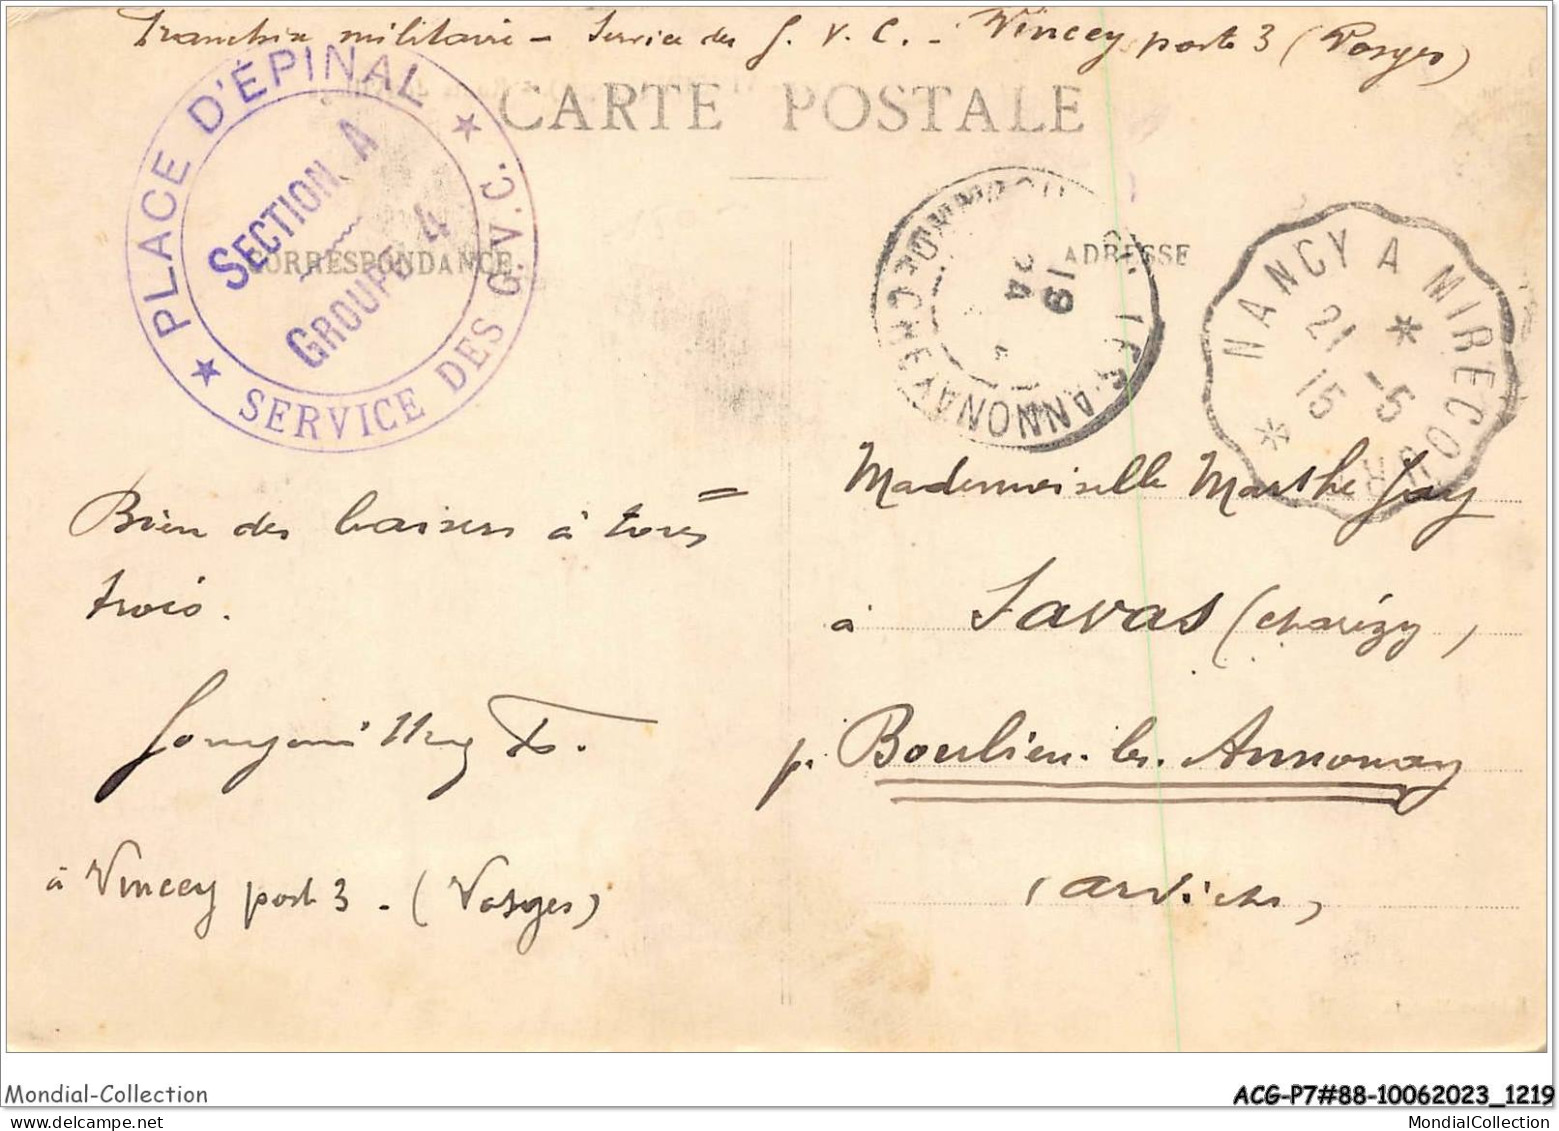 Franchise militaire – Service des G. V. C. – Vincey poste 3 (Vosges)
CARTE POSTALE
★ PLACE D'ÉPINAL ★
SERVICE DES G.V.C.
SECTION A
GROUPE 4
CORRESPONDANCE
ADRESSE
ANNONAY
19
24
NANCY A MIRECOURT
21 -5
15
Bien des baisers à tous
trois.
à Vincey poste 3 – (Vosges)
Mademoiselle Marthe Gay
à Savas (charézy)
p. Boulieu-les-Annonay
(Ardèche)
Mondial-Collection
ACG-P7#88-10062023_1219
MondialCollection